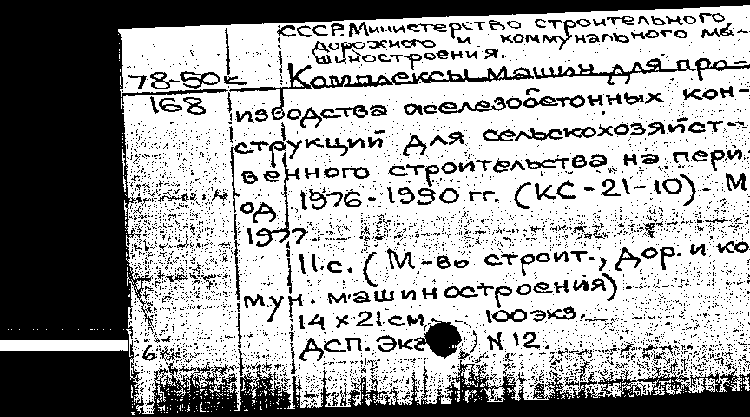 СССР. Министерство строительного,
дорожного и коммунального ма-
шиностроения.
78-50к Комплексы машин для про-
168 изводства железобетонных кон-
струкций для сельскохозяйст-
венного строительства на пери-
од 1976-1990 гг. (КС-21-10). М
1977
11 с. (М-во строит., дор. и ко
мун. машиностроения).
14 х 21 см. 100 экз.
ДСП. Экз N 12.
6